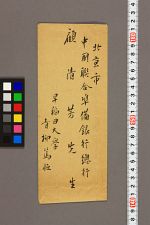 北京市
中国聯合準備銀行總行
顧湆芳先生
早稲田大学
青柳篤恒